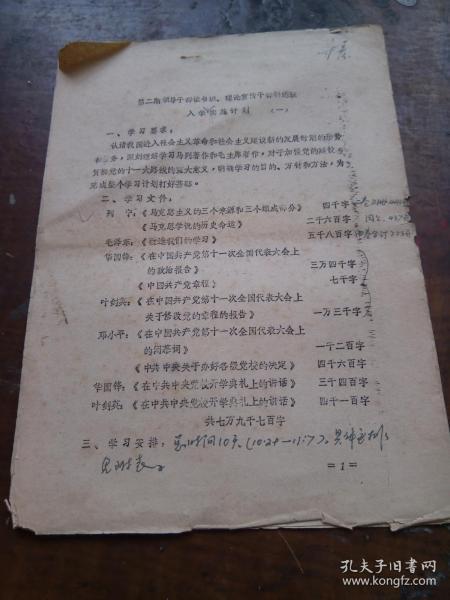 第二期领导干部读书班、理论宣传干部轮训班
入学实施计划 (一)
一、学习要求：
认清我国进入社会主义革命和社会主义建设新的发展时期的形势
和任务，深刻理解学习马列著作和毛主席著作，对于加强党的建设
贯彻党的十一大路线的重大意义，明确学习的目的、方针和方法，为
完成整个学习计划打好基础。
二、学习文件：
列宁：《马克思主义的三个来源和三个组成部分》 四千字
《马克思学说的历史命运》 二千六百字
毛泽东：《改造我们的学习》 五千八百字
华国锋：《在中国共产党第十一次全国代表大会上
的政治报告》 三万四千字
《中国共产党章程》 七千字
叶剑英：《在中国共产党第十一次全国代表大会上
关于修改党的章程的报告》 一万三千字
邓小平：《在中国共产党第十一次全国代表大会上
的闭幕词》 一千二百字
《中共中央关于办好各级党校的决定》 四千六百字
华国锋：《在中共中央党校开学典礼上的讲话》 三千四百字
叶剑英：《在中共中央党校开学典礼上的讲话》 四千一百字
共七万九千七百字
三、学习安排：总时间10天(10.24—11.7)。具体安排：
见附表。
=1=
孔夫子旧书网
www.kongfz.com